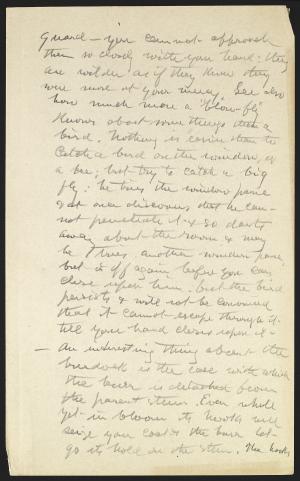 guard — you cannot approach
them so closely with your hand; they
are wilder as if they knew they
were more at your mercy. See also
how much more a "blow-fly"
knows about some things than a
bird. Nothing is easier than to
catch a bird on the window, or
a bee; but try to catch a big
fly: he tries the window pane
& at once discovers that he can-
not penetrate it & so darts
away about the room & may
be tries another window pane,
but is off again before you can
close upon him. But the bird
persists & will not be convinced
that it cannot escape through it
till your hand closes upon it —
— An interesting thing about the
burdock is the ease with which
the burr is detached from
the parent stem. Even while
yet in bloom its hooks will
seize your coat & the burr let
go its hold on the stem. The hooks